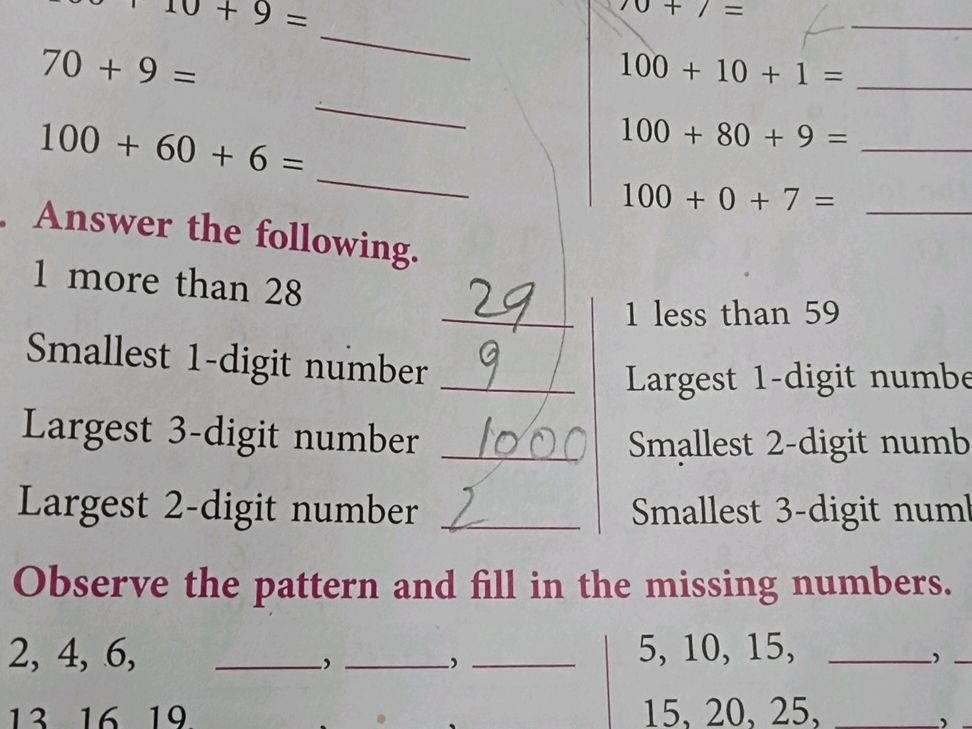 10 + 9 =
70 + 9 =
100 + 60 + 6 =
70 + 7 =
100 + 10 + 1 =
100 + 80 + 9 =
100 + 0 + 7 =
Answer the following.
1 more than 28 29
Smallest 1-digit number 9
Largest 3-digit number 1000
Largest 2-digit number 2
1 less than 59
Largest 1-digit numbe
Smallest 2-digit numb
Smallest 3-digit num
Observe the pattern and fill in the missing numbers.
2, 4, 6, , ,
5, 10, 15, ,
13, 16, 19, , ,
15, 20, 25, ,